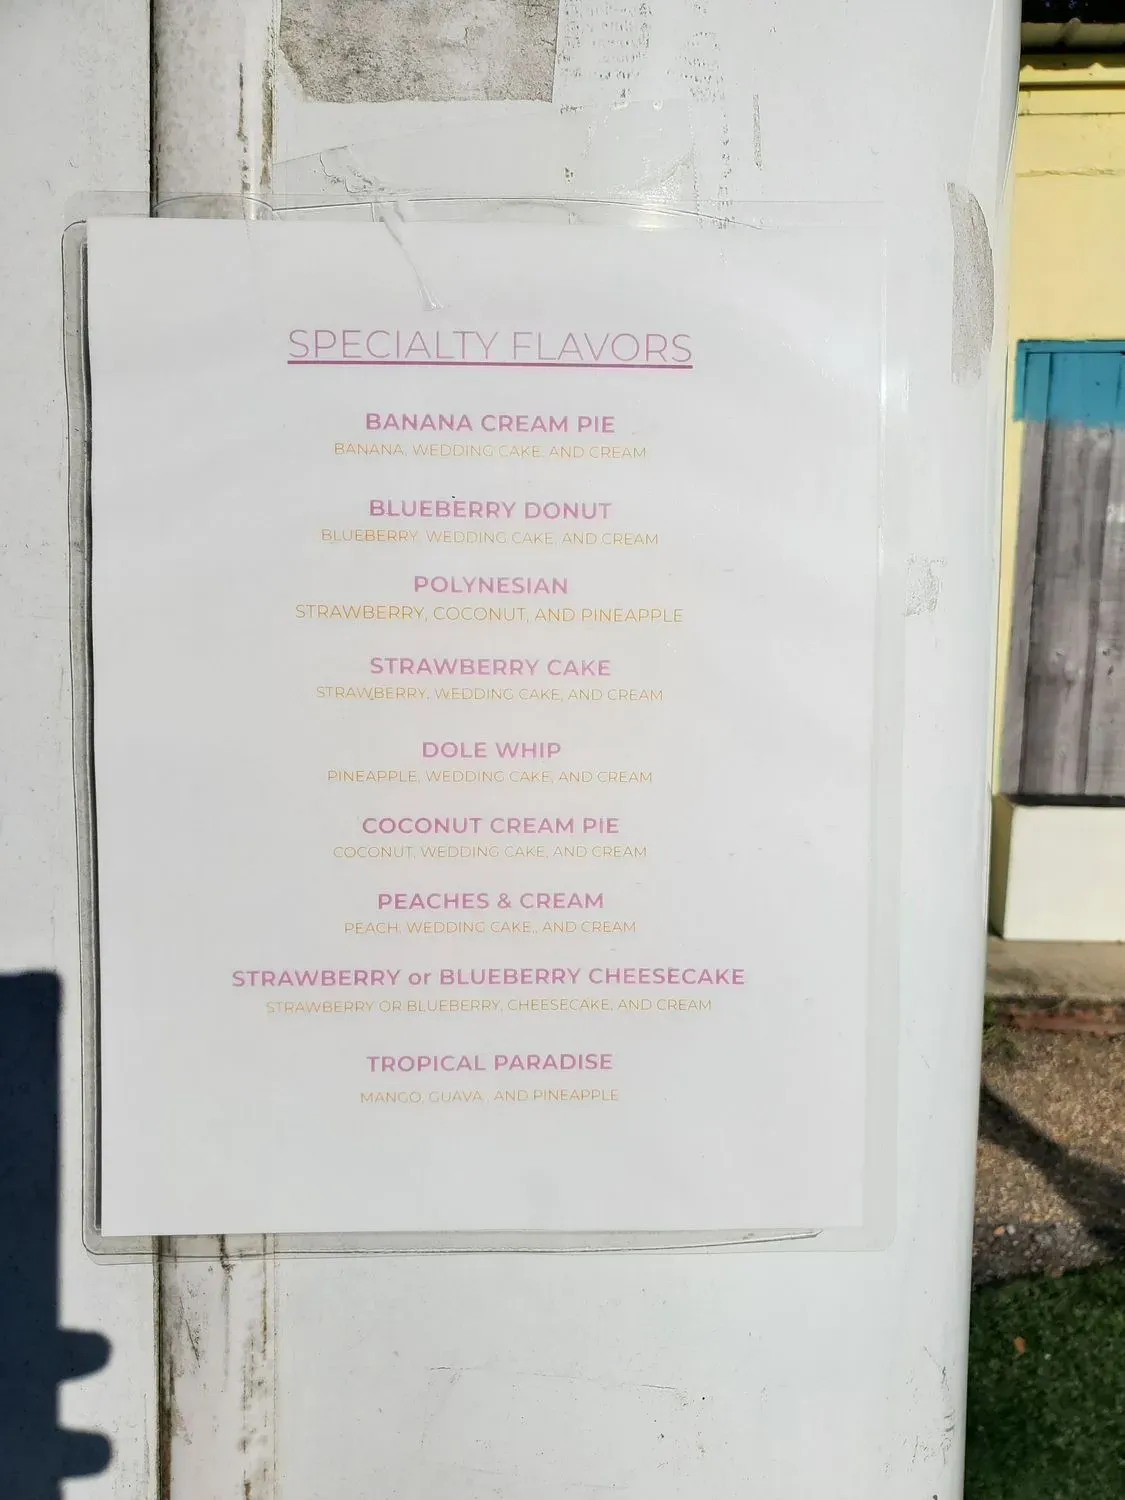 SPECIALTY FLAVORS
BANANA CREAM PIE
BANANA, WEDDING CAKE, AND CREAM
BLUEBERRY DONUT
BLUEBERRY, WEDDING CAKE, AND CREAM
POLYNESIAN
STRAWBERRY, COCONUT, AND PINEAPPLE
STRAWBERRY CAKE
STRAWBERRY, WEDDING CAKE, AND CREAM
DOLE WHIP
PINEAPPLE, WEDDING CAKE, AND CREAM
COCONUT CREAM PIE
COCONUT, WEDDING CAKE, AND CREAM
PEACHES & CREAM
PEACH, WEDDING CAKE,, AND CREAM
STRAWBERRY or BLUEBERRY CHEESECAKE
STRAWBERRY OR BLUEBERRY, CHEESECAKE, AND CREAM
TROPICAL PARADISE
MANGO, GUAVA, AND PINEAPPLE